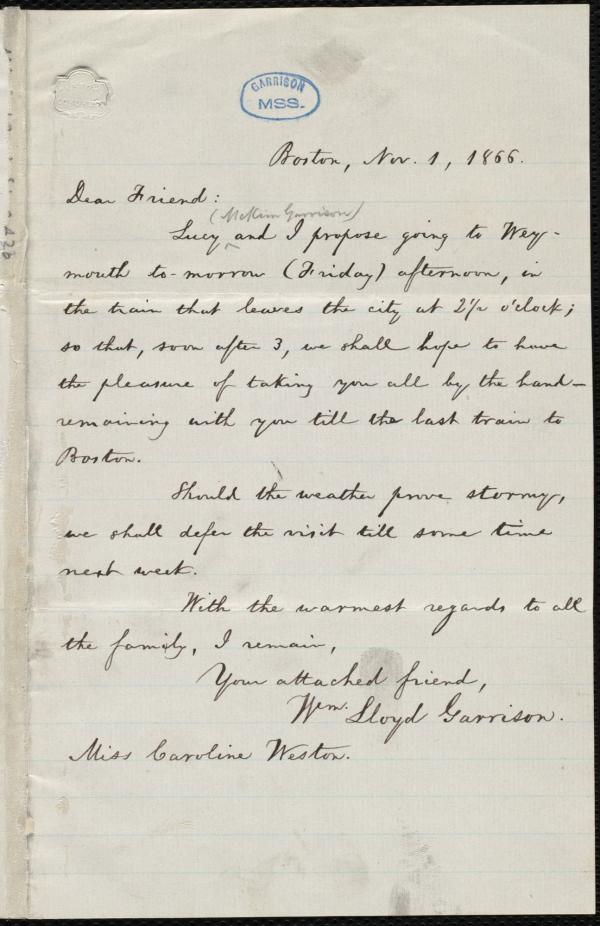 GARRISON
MSS.
Boston, Nov. 1, 1866.
Dear Friend:
(McKim Garrison)
Lucy ^ and I propose going to Wey-
mouth to-morrow (Friday) afternoon, in
the train that leaves the city at 2 1/2 o'clock;
so that, soon after 3, we shall hope to have
the pleasure of taking you all by the hand—
remaining with you till the last train to
Boston.
Should the weather prove stormy,
we shall defer the visit till some time
next week.
With the warmest regards to all
the family, I remain,
Your attached friend,
Wm. Lloyd Garrison.
Miss Caroline Weston.